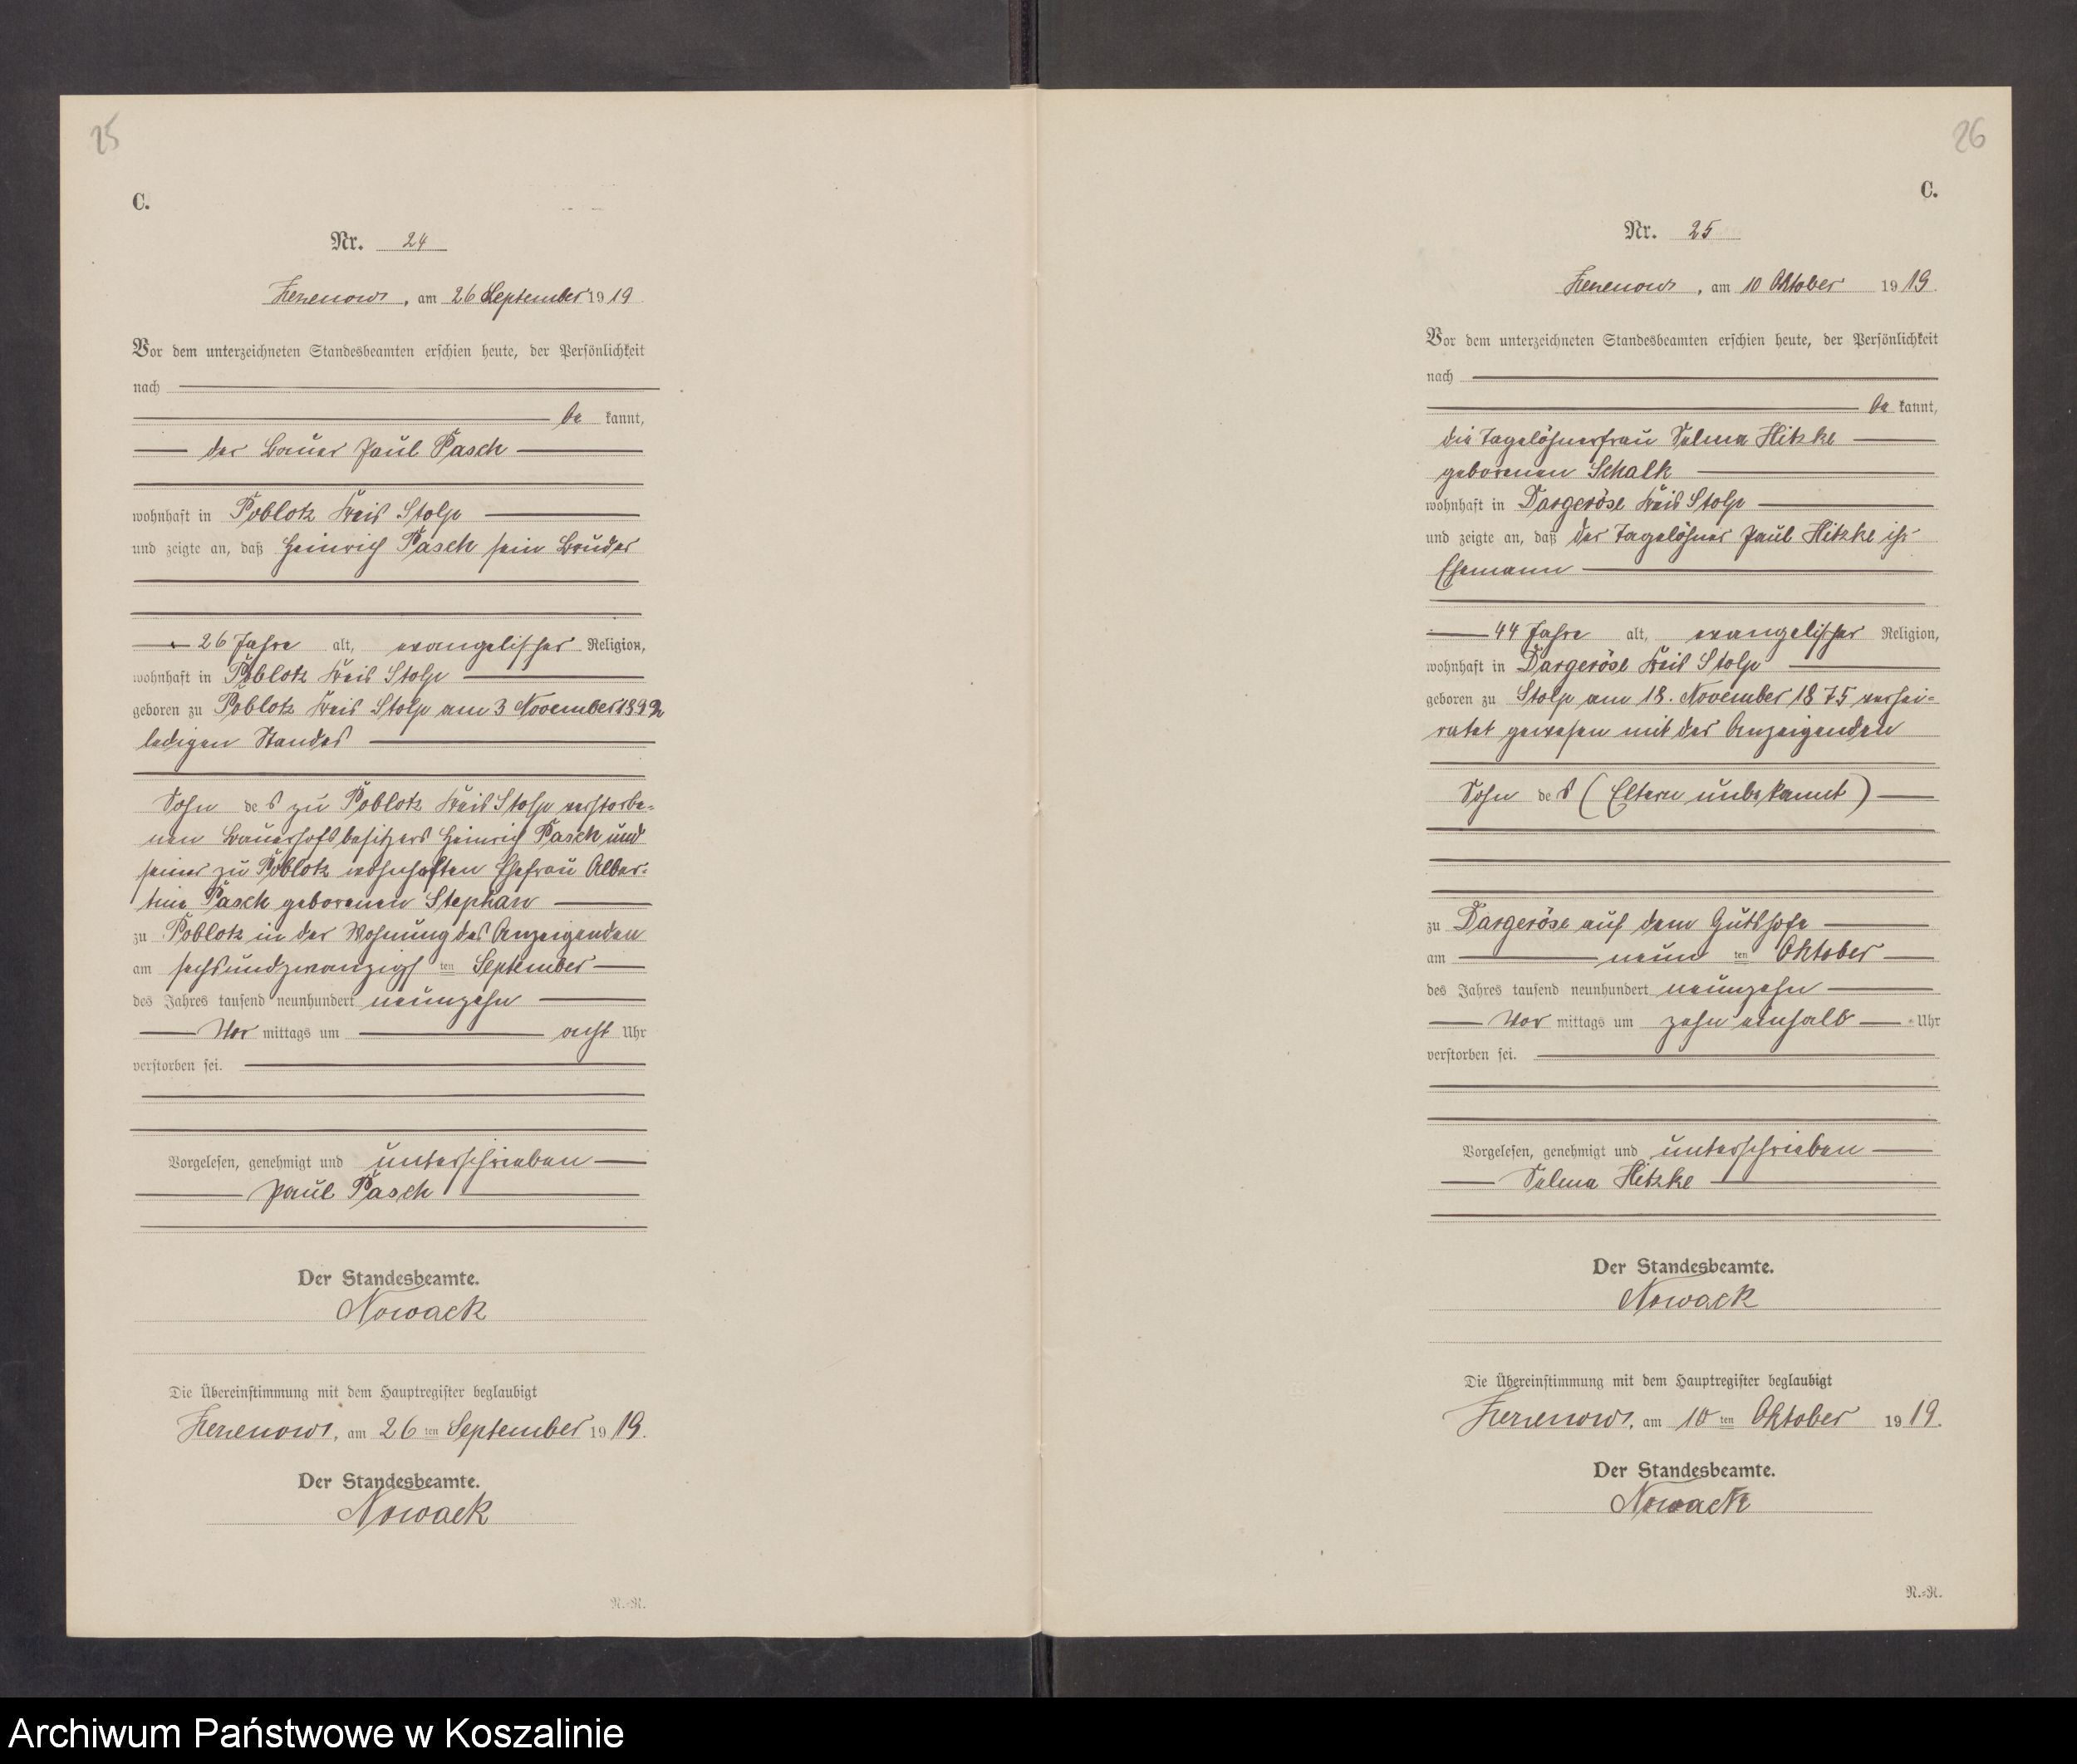 25
C.
Nr. 24
Zezenow, am 26 September 1919
Vor dem unterzeichneten Standesbeamten erschien heute, der Persönlichkeit
nach
be kannt,
der Bauer Paul Pasch
wohnhaft in Poblotz Kreis Stolp
und zeigte an, daß Heinrich Pasch sein Bruder
26 Jahre alt, evangelischer Religion,
wohnhaft in Poblotz Kreis Stolp
geboren zu Poblotz Kreis Stolp am 3 November 1892
ledigen Standes
Sohn des zu Poblotz Kreis Stolp verstorbe-
nen Bauerhofsbesitzers Heinrich Pasch und
seiner zu Poblotz wohnhaften Ehefrau Alber-
tine Pasch geborenen Stephan
zu Poblotz in der Wohnung des Anzeigenden
am sechsundzwanzigs ten September
des Jahres tausend neunhundert neunzehn
Vor mittags um acht Uhr
verstorben sei.
Vorgelesen, genehmigt und unterschrieben
Paul Pasch
Der Standesbeamte.
Nowack
Die Übereinstimmung mit dem Hauptregister beglaubigt
Zezenow, am 26 ten September 1919.
Der Standesbeamte.
Nowack
N.-N.
26
C.
Nr. 25
Zezenow, am 10 Oktober 1919.
Vor dem unterzeichneten Standesbeamten erschien heute, der Persönlichkeit
nach
be kannt,
die Tagelöhnerfrau Selma Hitzke
geborenen Schalk
wohnhaft in Dargeröse Kreis Stolp
und zeigte an, daß der Tagelöhner Paul Hitzke ihr
Ehemann
44 Jahre alt, evangelischer Religion,
wohnhaft in Dargeröse Kreis Stolp
geboren zu Stolp am 18. November 1875 verhei-
ratet gewesen mit der Anzeigenden
Sohn des (Eltern unbekannt)
zu Dargeröse auf dem Gutshofe
am neun ten Oktober
des Jahres tausend neunhundert neunzehn
Vor mittags um zehn einhalb Uhr
verstorben sei.
Vorgelesen, genehmigt und unterschrieben
Selma Hitzke
Der Standesbeamte.
Nowack
Die Übereinstimmung mit dem Hauptregister beglaubigt
Zezenow, am 10 ten Oktober 1919.
Der Standesbeamte.
Nowack
N.-N.
Archiwum Państwowe w Koszalinie